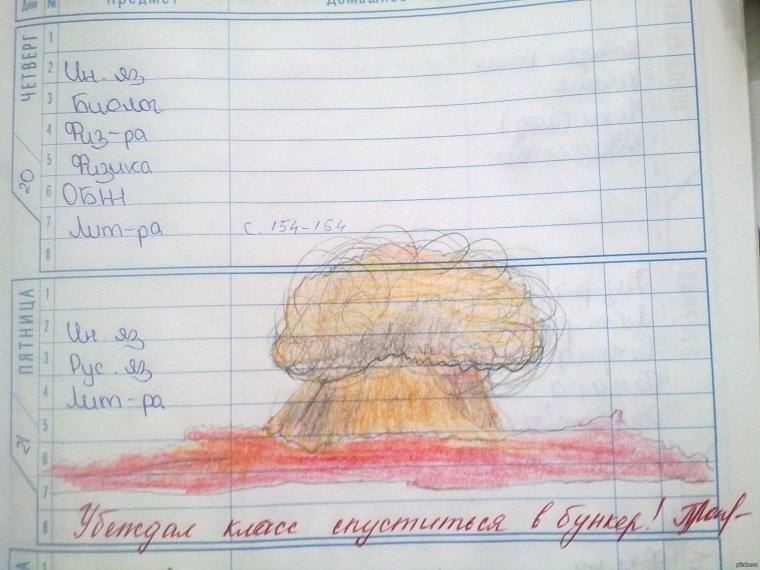 Дни № Предмет Домашнее
ЧЕТВЕРГ
20
1
2 Ин. яз
3 Биолог
4 Физ-ра
5 Физика
6 ОБЖ
7 Лит-ра с. 154-164
8
ПЯТНИЦА
21
1
2 Ин. яз
3 Рус. яз
4 Лит-ра
5
6
7
8 Убеждал класс спуститься в бункер!
pikabu.ru